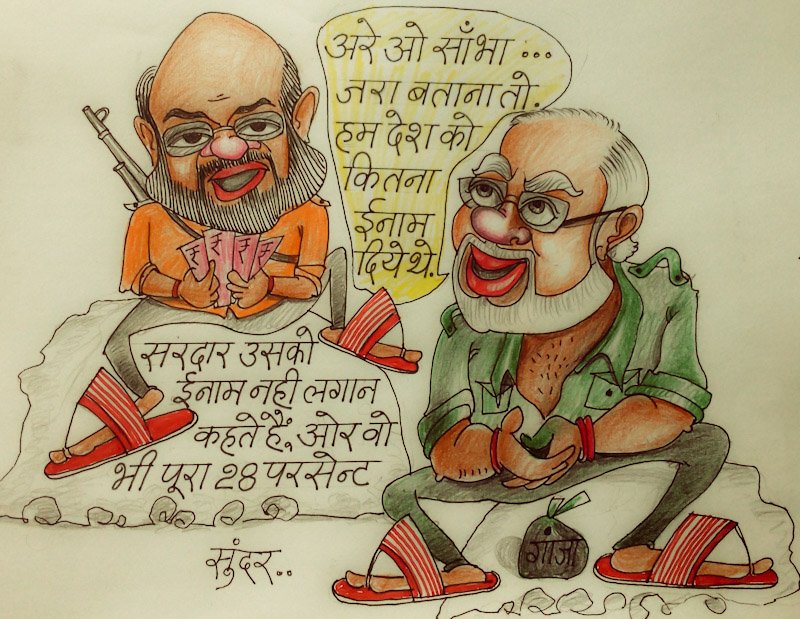 अरे ओ साँभा ...
जरा बताना तो.
हम देश को
कितना
ईनाम
दिये थे..
सरदार उसको
ईनाम नही लगान
कहते हैं, ओर वो
भी पूरा 28 परसेन्ट
गाजा
सुंदर..